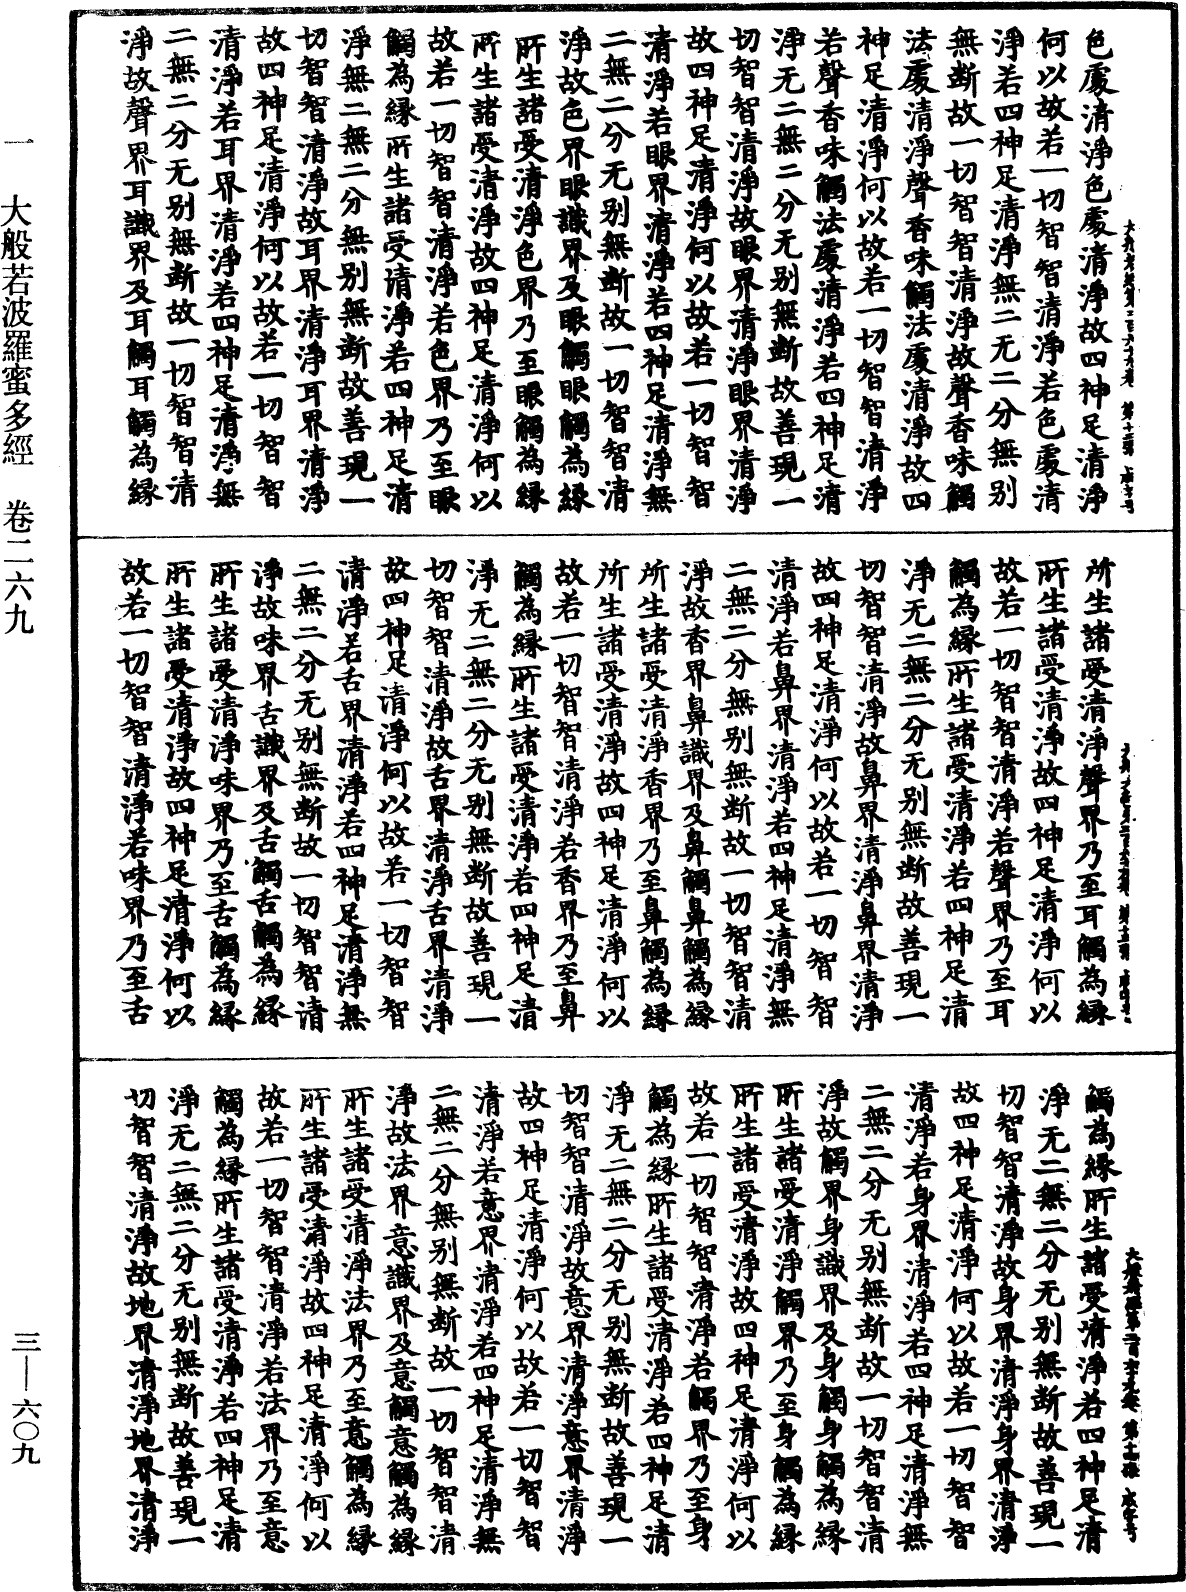 色處清淨色處清淨故四神足清淨
何以故若一切智智清淨若色處清
淨若四神足清淨無二无二分無别
無断故一切智智清淨故聲香味觸
法處清淨聲香味觸法處清淨故四
神足清淨何以故若一切智智清淨
若聲香味觸法處清淨若四神足清
淨无二無二分无别無断故善現一
切智智清淨故眼界清淨眼界清淨
故四神足清淨何以故若一切智智
清淨若眼界清淨若四神足清淨無
二無二分无别無断故一切智智清
淨故色界眼識界及眼觸眼觸為緣
所生諸受清淨色界乃至眼觸為緣
所生諸受清淨故四神足清淨何以
故若一切智智清淨若色界乃至眼
觸為緣所生諸受清淨若四神足清
淨無二無二分無别無断故善現一
切智智清淨故耳界清淨耳界清淨
故四神足清淨何以故若一切智智
清淨若耳界清淨若四神足清淨無
二無二分无别無断故一切智智清
淨故聲界耳識界及耳觸耳觸為緣
所生諸受清淨聲界乃至耳觸為緣
所生諸受清淨故四神足清淨何以
故若一切智智清淨若聲界乃至耳
觸為緣所生諸受清淨若四神足清
淨无二無二分无别無断故善現一
切智智清淨故鼻界清淨鼻界清淨
故四神足清淨何以故若一切智智
清淨若鼻界清淨若四神足清淨無
二無二分無别無断故一切智智清
淨故香界鼻識界及鼻觸鼻觸為緣
所生諸受清淨香界乃至鼻觸為緣
所生諸受清淨故四神足清淨何以
故若一切智智清淨若香界乃至鼻
觸為緣所生諸受清淨若四神足清
淨无二無二分无别無断故善現一
切智智清淨故舌界清淨舌界清淨
故四神足清淨何以故若一切智智
清淨若舌界清淨若四神足清淨無
二無二分无别無断故一切智智清
淨故味界舌識界及舌觸舌觸為緣
所生諸受清淨味界乃至舌觸為緣
所生諸受清淨故四神足清淨何以
故若一切智智清淨若味界乃至舌
觸為緣所生諸受清淨若四神足清
淨无二無二分无别無断故善現一
切智智清淨故身界清淨身界清淨
故四神足清淨何以故若一切智智
清淨若身界清淨若四神足清淨無
二無二分无别無断故一切智智清
淨故觸界身識界及身觸身觸為緣
所生諸受清淨觸界乃至身觸為緣
所生諸受清淨故四神足清淨何以
故若一切智智清淨若觸界乃至身
觸為緣所生諸受清淨若四神足清
淨无二無二分无别無断故善現一
切智智清淨故意界清淨意界清淨
故四神足清淨何以故若一切智智
清淨若意界清淨若四神足清淨無
二無二分無别無断故一切智智清
淨故法界意識界及意觸意觸為緣
所生諸受清淨法界乃至意觸為緣
所生諸受清淨故四神足清淨何以
故若一切智智清淨若法界乃至意
觸為緣所生諸受清淨若四神足清
淨无二無二分无别無断故善現一
切智智清淨故地界清淨地界清淨
一　大般若波羅蜜多經　卷二六九
三—六〇九